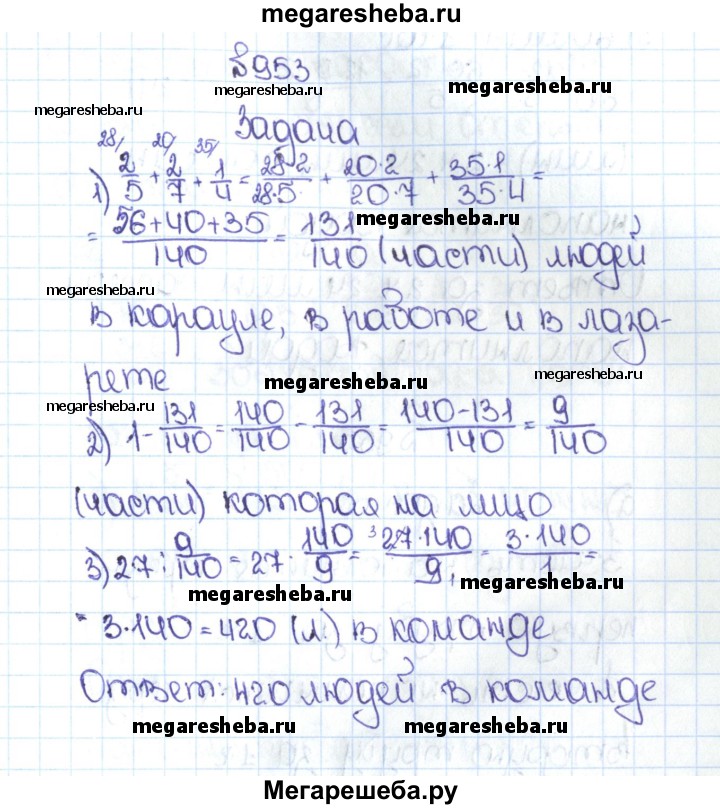 megaresheba.ru
№953
megaresheba.ru
megaresheba.ru
megaresheba.ru
Задача
1) 28/ 2/5 + 20/ 2/7 + 35/ 1/4 = 28·2/28·5 + 20·2/20·7 + 35·1/35·4 =
megaresheba.ru
= 56+40+35/140 = 131/140 (части) людей
megaresheba.ru
в карауле, в работе и в лаза-
рете
megaresheba.ru
megaresheba.ru
megaresheba.ru
2) 1 - 131/140 = 140/140 - 131/140 = 140-131/140 = 9/140
(части) которая на лицо
3) 27 : 9/140 = 27 · 140/9 = ³27·140/9₁ = 3·140/1 =
megaresheba.ru
megaresheba.ru
= 3·140=420 (л.) в команде
Ответ: 420 людей в команде
megaresheba.ru
megaresheba.ru
Мегарешеба.ру